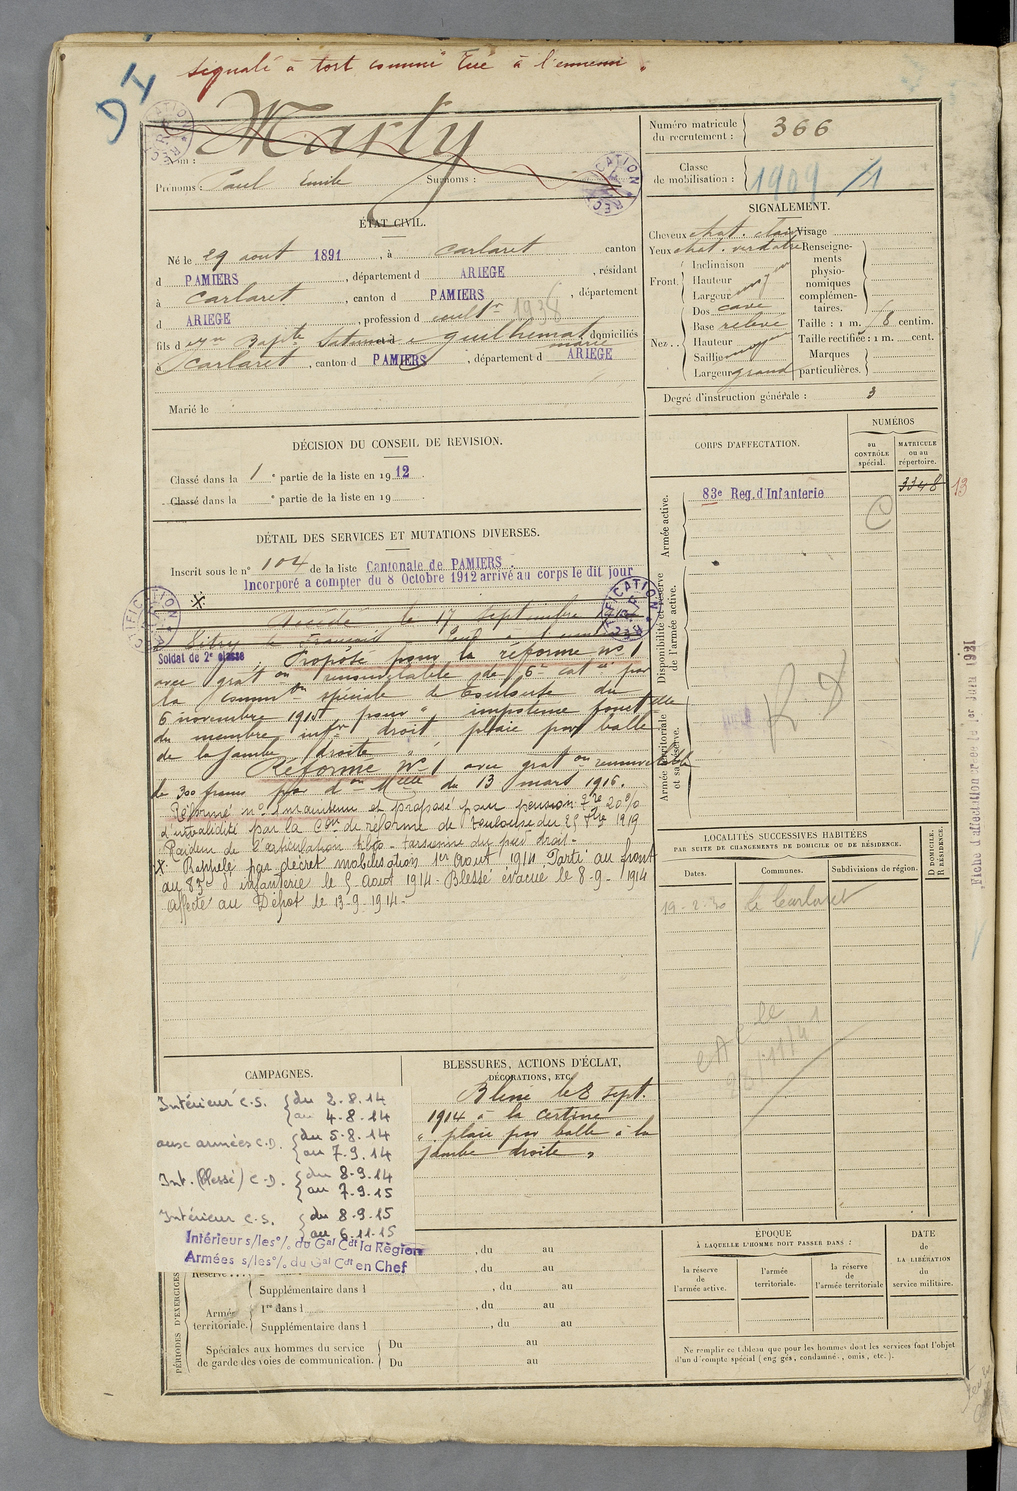 D4
Signalé à tort comme Tué à l'ennemi.
Marty
Nom :
Prénoms : Paul Emile Surnoms :
RECTIFICATION
RECTIFICATION
Numéro matricule du recrutement : 366
Classe de mobilisation : 1909 /1
ÉTAT CIVIL.
Né le 29 aout 1891, à Carlaret canton
d PAMIERS, département d ARIEGE, résidant
à Carlaret, canton d PAMIERS, département
d ARIEGE, profession d cult.r 1938
fils d Bapte Saturnin et d Guilhemat Marie domiciliés
à Carlaret, canton d PAMIERS, département d ARIEGE
Marié le
SIGNALEMENT.
Cheveux chat. clair Visage
Yeux chat. verdatre Renseignements physionomiques complémentaires.
Front. Inclinaison
Hauteur
Largeur moyen
Nez.. Dos cave
Base relevé
Hauteur
Saillie moyen
Largeur grand
Taille : 1 m. 68 centim.
Taille rectifiée : 1 m. cent.
Marques particulières.
Degré d'instruction générale : 3
DÉCISION DU CONSEIL DE REVISION.
Classé dans la 1 e partie de la liste en 1912.
Classé dans la e partie de la liste en 19 .
DÉTAIL DES SERVICES ET MUTATIONS DIVERSES.
Inscrit sous le n° 104 de la liste Cantonale de PAMIERS.
Incorporé a compter du 8 Octobre 1912 arrivé au corps le dit jour
X. Décédé le 17 Septembre 1914
Vitry le Français Tué à l'ennemi
RECTIFICATION
RECTIFICATION
Soldat de 2e classe
Proposé pour la réforme n° 1
avec grat on renouvelable de 6e cat ie par
la comm on spéciale de Toulouse du
6 novembre 1915 pour " impotence fonct elle
du membre infr droit, plaie par balle
de la jambe droite "
Réformé N° 1 avec grat on renouvelable
de 300 francs par d on Mlle du 13 mars 1916.
Réformé n° 1 maintenu et proposé pour pension 20 %
d'invalidité par la Con de réforme de Toulouse du 25 7bre 1919
Raideur de l'articulation tibio-tarsienne du pied droit.
X. Rappelé par décret mobilisation 1er Aout 1914. Parti au front
au 83e d'infanterie le 5 Aout 1914. Blessé évacué le 8-9-1914
affecté au Dépot le 13-9-1914.
CORPS D'AFFECTATION.
NUMÉROS
au CONTRÔLE spécial.
MATRICULE ou au répertoire.
Armée active.
83e Reg. d'Infanterie 3348 13
Disponibilité et réserve de l'armée active.
Armée territoriale et sa réserve.
R D
Fiche d'affectation créée le 1er Juin 1921
LOCALITÉS SUCCESSIVES HABITÉES
PAR SUITE DE CHANGEMENTS DE DOMICILE OU DE RÉSIDENCE.
Dates.
Communes.
Subdivisions de région.
D DOMICILE.
R RÉSIDENCE.
19-2-30 Le Carlaret
CAC le
28/11/41
CAMPAGNES.
Intérieur C.S. du 2.8.14
au 4.8.14
aux armées C.D. du 5.8.14
au 7.9.14
Int. (Blessé) C.D. du 8.9.14
au 7.9.15
Intérieur C.S. du 8.9.15
au 6.11.15
Intérieur s/les °/. du Gal Cdt la Région
Armées s/les °/. du Gal Cdt en Chef
BLESSURES, ACTIONS D'ÉCLAT,
DÉCORATIONS, ETC.
Blessé le 8 sept.
1914 à la Certine
" plaie par balle à la
jambe droite "
PÉRIODES D'EXERCICES
, du au
Réserve... , du au
Supplémentaire dans l , du au
Armée territoriale. 1re dans l , du au
Supplémentaire dans l , du au
Spéciales aux hommes du service de garde des voies de communication. Du au
Du au
ÉPOQUE
À LAQUELLE L'HOMME DOIT PASSER DANS :
la réserve de l'armée active.
l'armée territoriale.
la réserve de l'armée territoriale
DATE de LA LIBÉRATION du service militaire.
Ne remplir ce tableau que pour les hommes dont les services font l'objet
d'un décompte spécial (engagés, condamnés, omis, etc.).